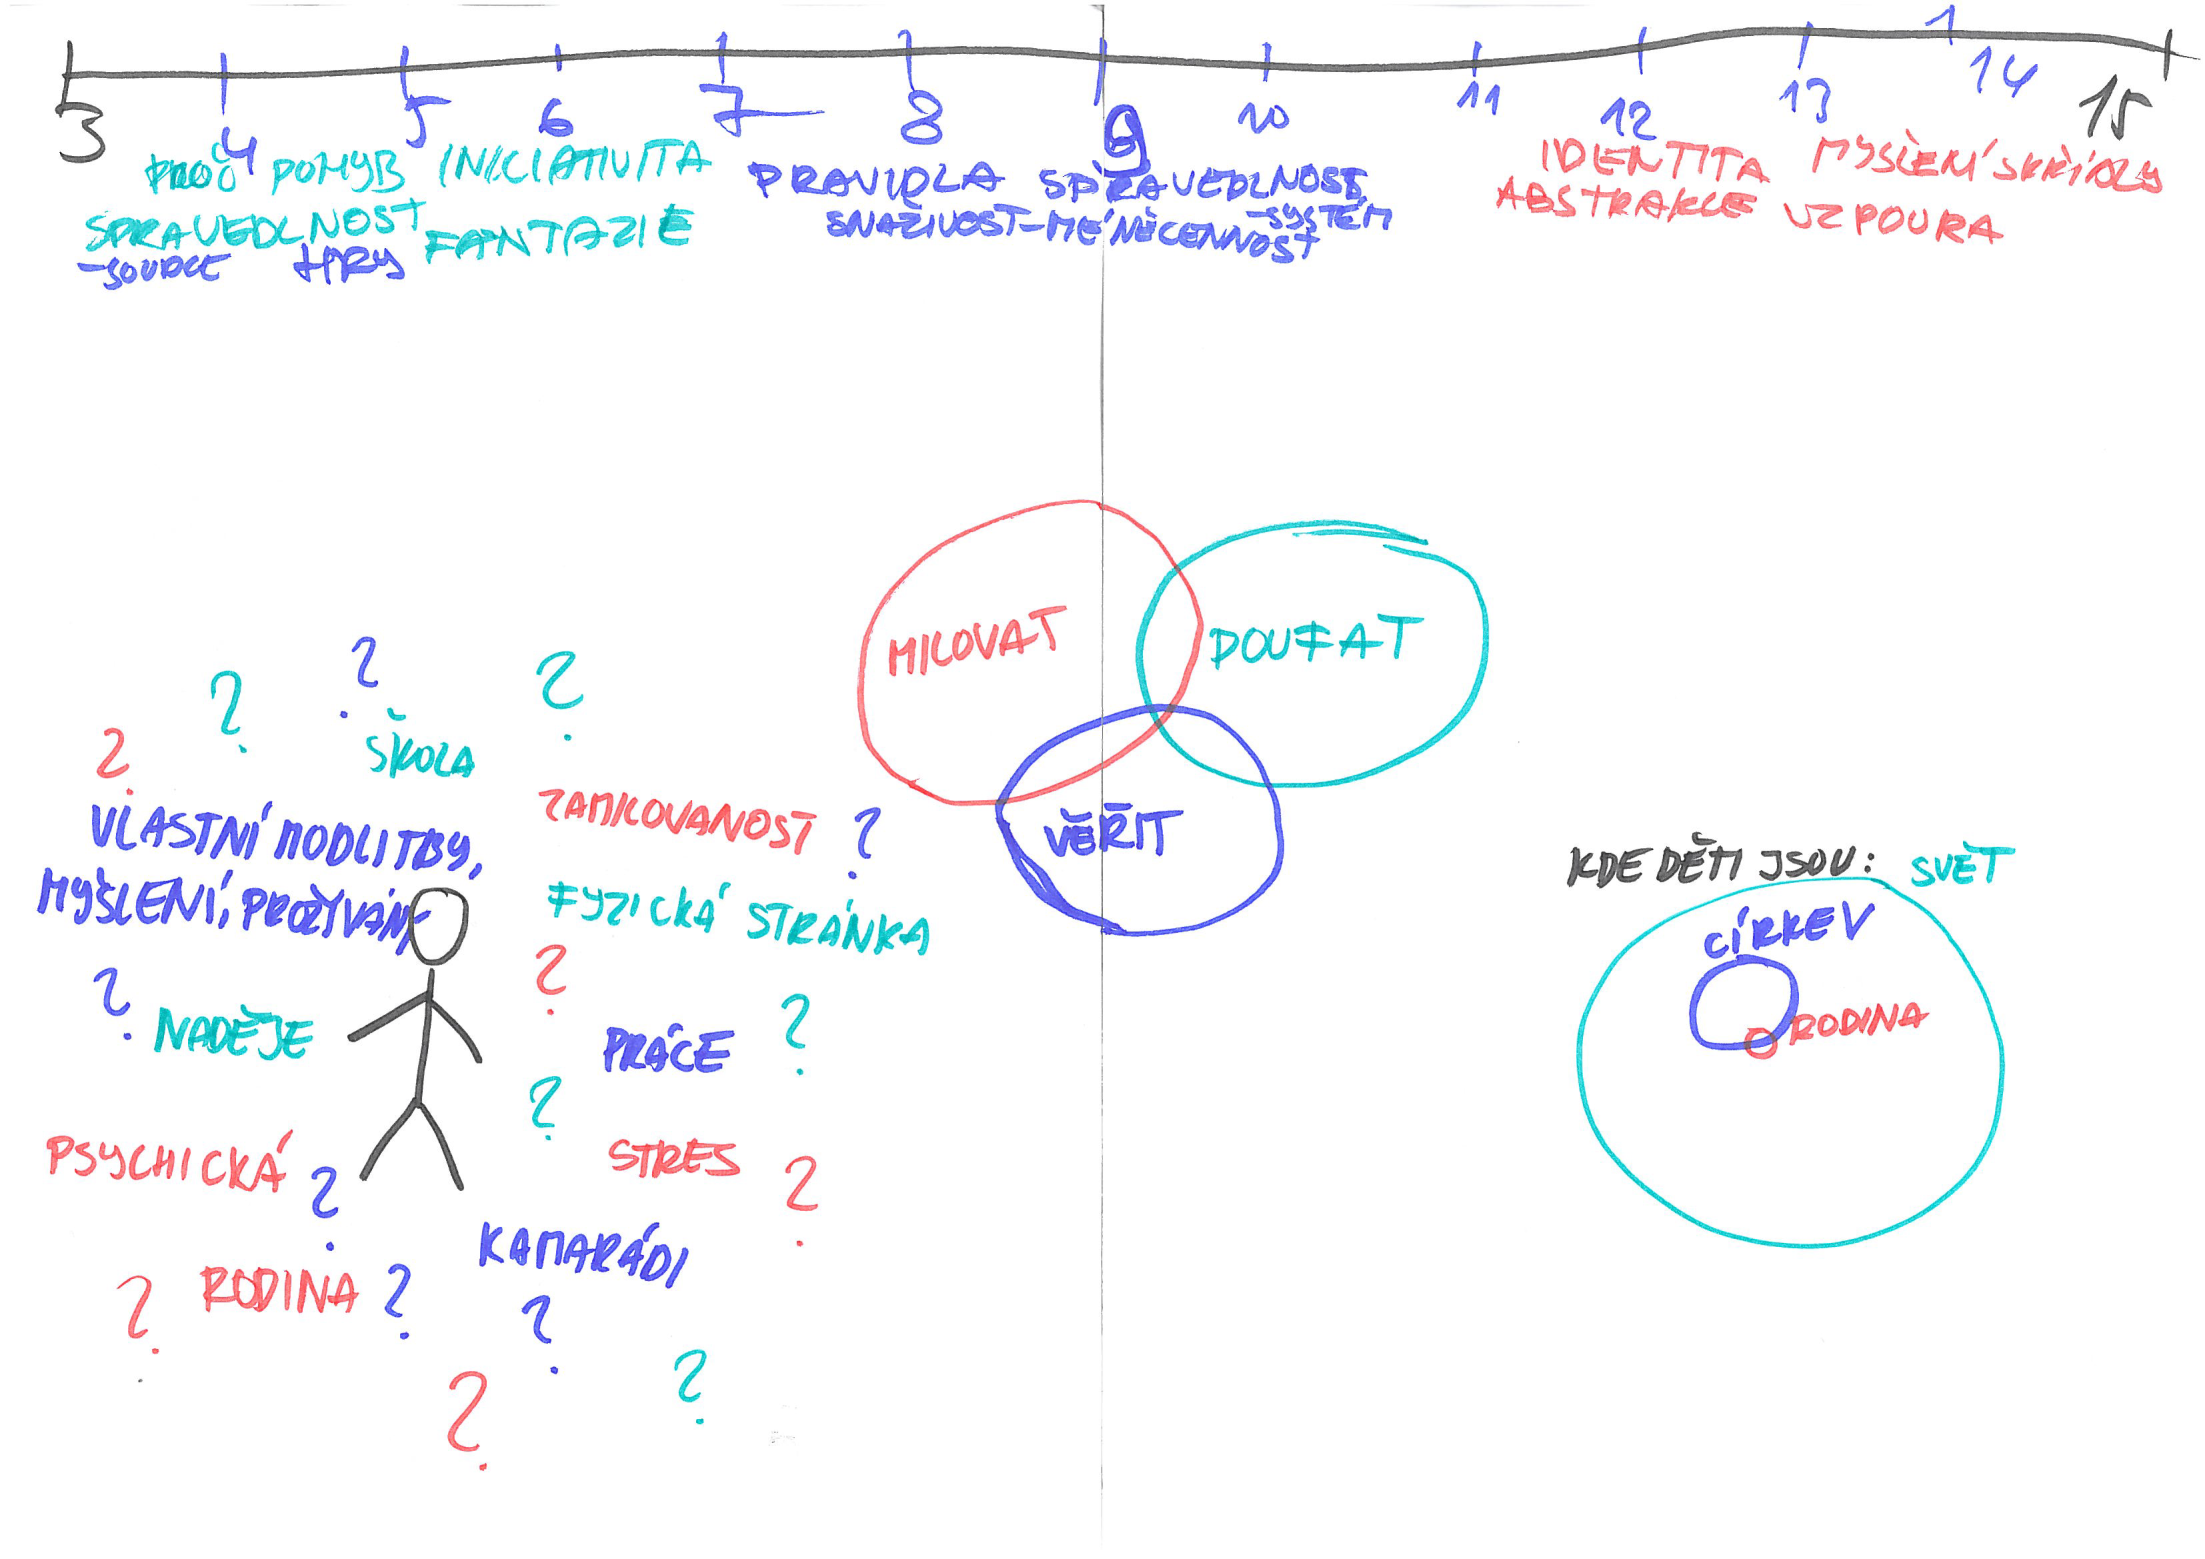 3 4 5 6 7 8 9 10 11 12 13 14 15
PROČ POHYB INICIATIVITA
SPRAVEDLNOST FANTAZIE
-SOUDCE HRY
PRAVIDLA SPRAVEDLNOST
-SYSTÉM
SNAŽIVOST-MÉNĚCENNOST
IDENTITA MYŠLENÍ SKŘÍDLY
ABSTRAKCE VZPOURA
MILOVAT
DOUFAT
VĚŘIT
? ? ? ?
ŠKOLA
ZAMILOVANOST ?
VLASTNÍ MODLITBY,
MYŠLENÍ, PROŽÍVÁNÍ
FYZICKÁ STRÁNKA
? ?
NADĚJE
PRÁCE ?
?
PSYCHICKÁ ?
STRES ?
KAMARÁDI
? RODINA ? ?
? ?
KDE DĚTI JSOU: SVĚT
CÍRKEV
RODINA